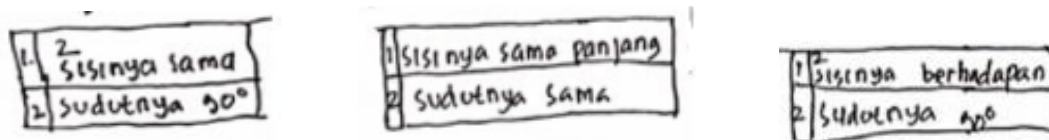 1. 2 sisinya sama
2 sudutnya 90°
1 sisinya sama panjang
2 sudutnya sama
1 2 sisinya berhadapan
2 sudutnya 90°